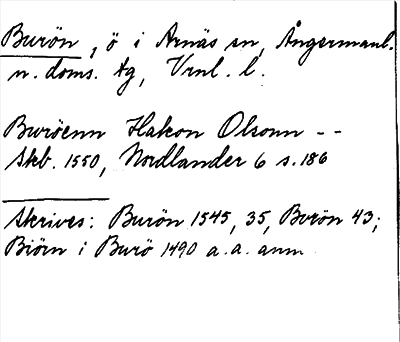 Burön, ö i Arnäs sn, Ångermanl.
n. doms. tg, Vrnl. l.
Buröenn Hakon Olsonn - -
Skb. 1550, Nordlander 6 s. 186
Skrives: Burön 1545, 35, Bvrön 43;
Biörn i Burö 1490 a. a. anm